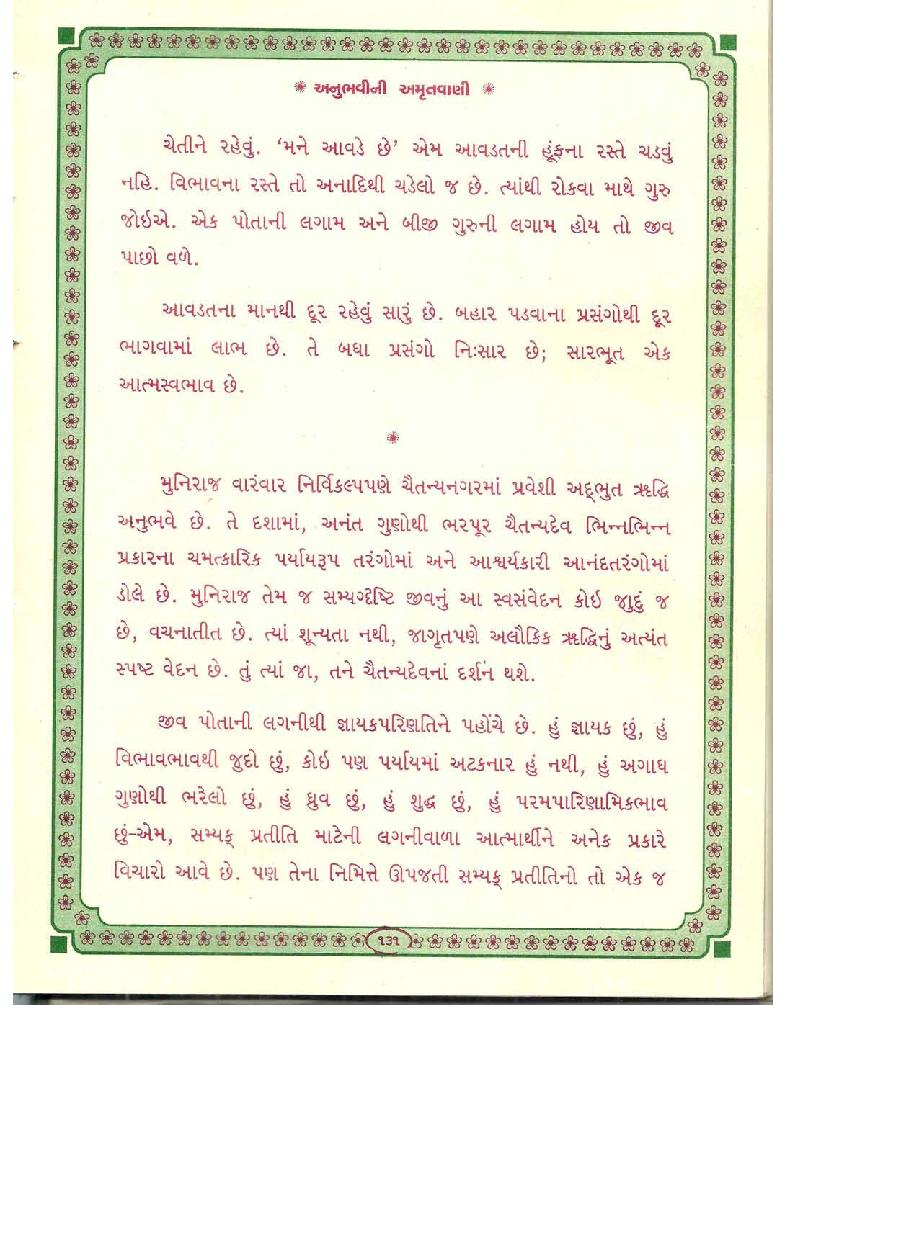 ❋ અનુભવીની અમૃતવાણી ❋
ચેતીને રહેવું. ‘મને આવડે છે’ એમ આવડતની હૂંફના રસ્તે ચડવું
નહિ. વિભાવના રસ્તે તો અનાદિથી ચડેલો જ છે. ત્યાંથી રોકવા માથે ગુરુ
જોઈએ. એક પોતાની લગામ અને બીજી ગુરુની લગામ હોય તો જીવ
પાછો વળે.
આવડતના માનથી દૂર રહેવું સારું છે. બહાર પડવાના પ્રસંગોથી દૂર
ભાગવામાં લાભ છે. તે બધા પ્રસંગો નિઃસાર છે; સારભૂત એક
આત્મસ્વભાવ છે.
❋
મુનિરાજ વારંવાર નિર્વિકલ્પપણે ચૈતન્યનગરમાં પ્રવેશી અદ્ભુત ઋદ્ધિ
અનુભવે છે. તે દશામાં, અનંત ગુણોથી ભરપૂર ચૈતન્યદેવ ભિન્નભિન્ન
પ્રકારના ચમત્કારિક પર્યાયરૂપ તરંગોમાં અને આશ્ચર્યકારી આનંદતરંગોમાં
ડોલે છે. મુનિરાજ તેમ જ સમ્યગ્દૃષ્ટિ જીવનું આ સ્વસંવેદન કોઈ જુદું જ
છે, વચનાતીત છે. ત્યાં શૂન્યતા નથી, જાગૃતપણે અલૌકિક ઋદ્ધિનું અત્યંત
સ્પષ્ટ વેદન છે. તું ત્યાં જા, તને ચૈતન્યદેવનાં દર્શન થશે.
જીવ પોતાની લગનીથી જ્ઞાયકપરિણતિને પહોંચે છે. હું જ્ઞાયક છું, હું
વિભાવભાવથી જુદો છું, કોઈ પણ પર્યાયમાં અટકનાર હું નથી, હું અગાધ
ગુણોથી ભરેલો છું, હું ધ્રુવ છું, હું શુદ્ધ છું, હું પરમપારિણામિકભાવ
છું-એમ, સમ્યક્ પ્રતીતિ માટેની લગનીવાળા આત્માર્થીને અનેક પ્રકારે
વિચારો આવે છે. પણ તેના નિમિત્તે ઊપજતી સમ્યક્ પ્રતીતિનો તો એક જ
૧૩૧